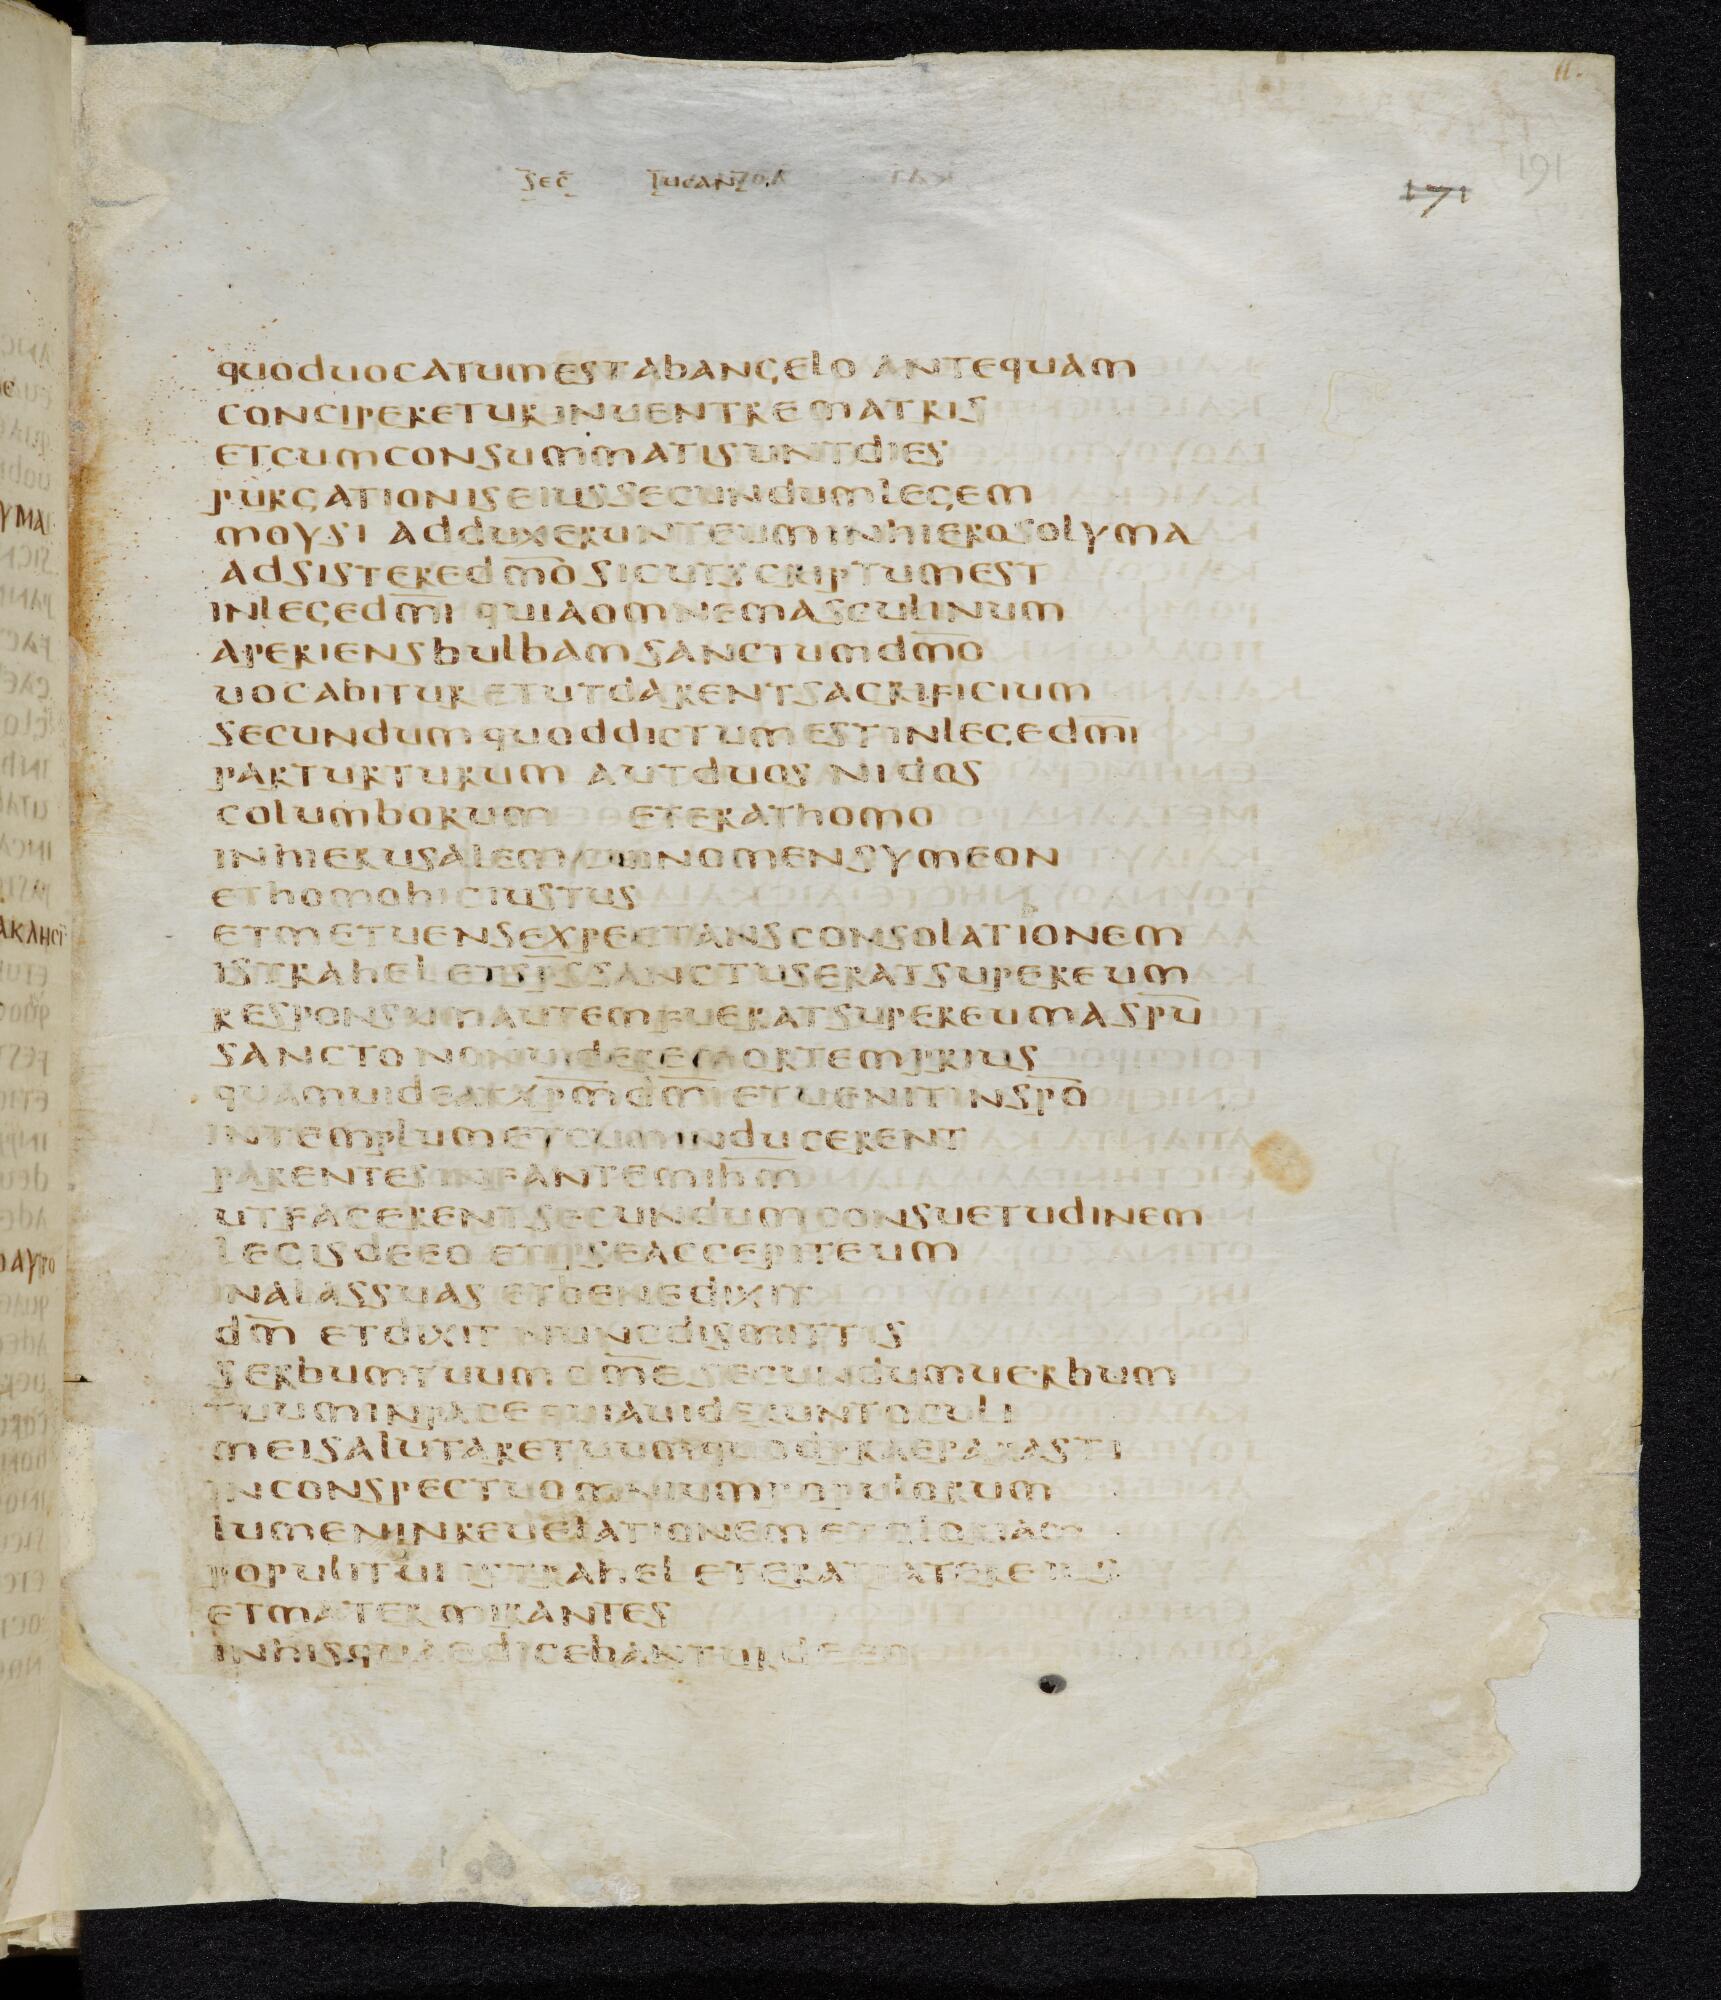 11.
191
171
sec lucan
quoduocatumestabangelo antequam
conciperetur inuentre matris
etcumconsummatisuntdies
purgationiseiussecundumlegem
moysi adduxerunteuminhierosolyma
adsisteredm̅o sicutscriptumest
inlegedm̅i quiaomnemasculinum
aperiensbulbamsanctumdm̅o
uocabitur etutdarentsacrificium
secundumquoddictumestinlegedm̅i
parturturum autduos nidos
columborum eterathomo
inhierusalem cuinomensymeon
ethomohiciustus
etmetuensexpectansconsolationem
istrahel etsp̅ssanctuseratsupereum
responsumautemfueratsupereumaspu̅
sanctononuideremortemprius
quamuideatxp̅mdm̅ etuenitinspo̅
intemplumetcuminducerent
parentesinfantemih̅m
utfacerentsecundumconsuetudinem
legisdeeo etipseaccepiteum
inalassuas etbenedixit
dm̅ etdixit nuncdismittis
serbumtuumdm̅esecundumuerbum
tuuminpace quiauideruntoculi
meisalutaretuumquodpraeparasti
inconspectuomniumpopulorum
lumeninreuelationemetgloriam
populitui istrahel eteratpatereius
etmater mirantes
inhisquaedicebanturdeeo